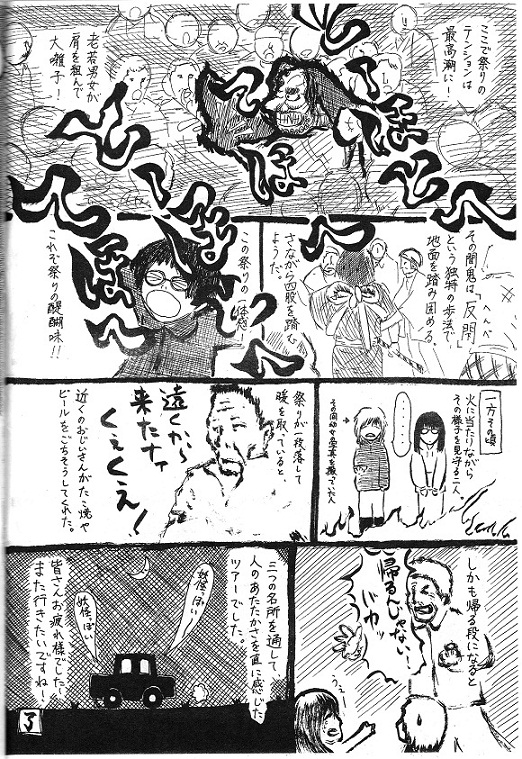 ここで祭りの
テンションは
最高潮に！
老若男女が
肩を組んで
大囃子！
てーほへ
てほへ
その間鬼は「反閇」
へんべ
という独特の歩法で
地面を踏み固める。
さながら四股を踏む
ようだ。
てーほへ
てほへ
この祭りの一体感！
これぞ祭りの醍醐味！！
一方その頃
火に当たりながら
その様子を見守る二人。
‥‥
その間幼女写真を撮っていた人
祭りが一段落して
暖を取っていると、
遠くから
来たナァ
くえくえ！
近くのおじいさんがたい焼や
ビールをごちそうしてくれた。
しかも帰る段になると
帰るんじゃない！
バカッ
うぇ
三つの名所を通して、
人のあたたかさを直に感じた
ツアーでした。
皆さんお疲れ様でした！
また行きたいですね！
妖怪っぽい
妖怪っぽい
了